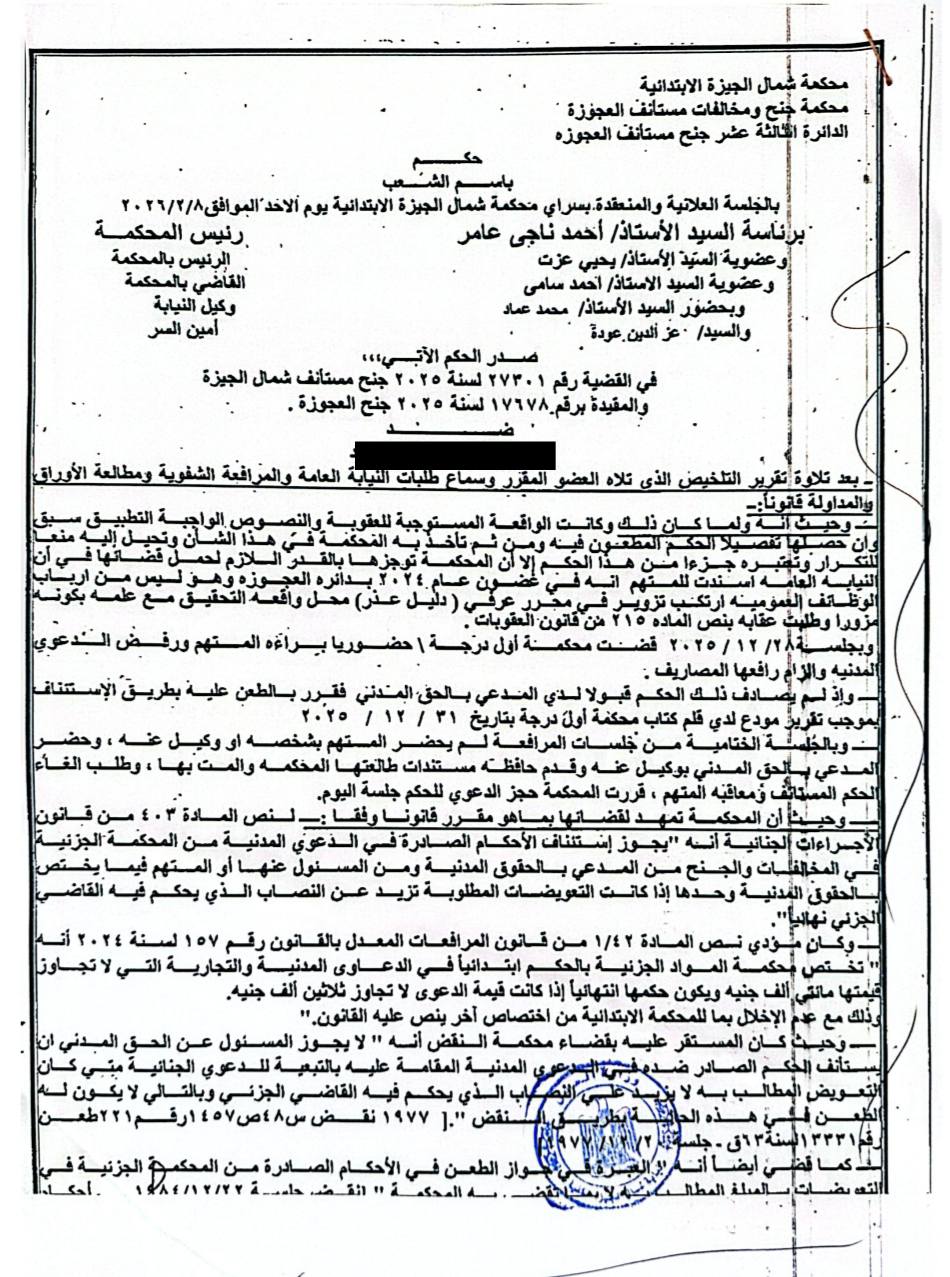 محكمة شمال الجيزة الابتدائية
محكمة جنح ومخالفات مستأنف العجوزة
الدائرة الثالثة عشر جنح مستأنف العجوزه
حكـــــم
باســـم الشـعب
بالجلسة العلانية والمنعقدة بسراي محكمة شمال الجيزة الابتدائية يوم الاحد الموافق٢٠٢٦/٢/٨
برئاسة السيد الأستاذ/ أحمد ناجى عامر رئيس المحكمــة
وعضوية السيد الأستاذ/ يحيي عزت الرئيس بالمحكمة
وعضوية السيد الاستاذ/ احمد سامى القاضي بالمحكمة
وبحضور السيد الأستاذ/ محمد عماد وكيل النيابة
والسيد/ عز الدين عودة أمين السر
صـدر الحكم الآتـــي،،،
في القضية رقم ٢٧٣٠١ لسنة ٢٠٢٥ جنح مستأنف شمال الجيزة
والمقيدة برقم ١٧٦٧٨ لسنة ٢٠٢٥ جنح العجوزة .
ضـــــــد
ـ بعد تلاوة تقرير التلخيص الذي تلاه العضو المقرر وسماع طلبات النيابة العامة والمرافعة الشفوية ومطالعة الأوراق
والمداولة قانوناً:ـ
ـــ وحيث انه ولما كان ذلك وكانت الواقعة المستوجبة للعقوبة والنصوص الواجبة التطبيق سبق
وان حصلها تفصيلا الحكم المطعون فيه ومن ثم تأخذ به المحكمة في هذا الشأن وتحيل إليه منعا
للتكرار وتعتبره جزءا من هذا الحكم إلا أن المحكمة توجزها بالقدر اللازم لحمل قضائها في أن
النيابة العامه اسندت للمتهم انه في غضون عام ٢٠٢٤ بدائره العجوزه وهو ليس من ارباب
الوظائف العموميه ارتكب تزوير في محرر عرفي ( دليل عذر) محل واقعه التحقيق مع علمه بكونه
مزورا وطلبت عقابه بنص الماده ٢١٥ من قانون العقوبات .
وبجلســة٢٨/ ١٢ / ٢٠٢٥ قضت محكمة أول درجة \ حضوريا ببراءه المتهم ورفض الدعوي
المدنيه والزام رافعها المصاريف .
ـــ وإذ لم يصادف ذلك الحكم قبولا لدي المدعي بالحق المدني فقرر بالطعن عليه بطريق الإستئناف
بموجب تقرير مودع لدي قلم كتاب محكمة أول درجة بتاريخ ٣١ / ١٢ / ٢٠٢٥
ـــ وبالجلسة الختامية من جلسات المرافعة لم يحضر المتهم بشخصه او وكيل عنه ، وحضر
المدعي بالحق المدني بوكيل عنه وقدم حافظه مستندات طالعتها المحكمه والمت بها ، وطلب الغاء
الحكم المستأنف ومعاقبه المتهم ، قررت المحكمة حجز الدعوي للحكم جلسة اليوم.
ـــ وحيث أن المحكمة تمهد لقضائها بماهو مقرر قانونا وفقا :ـــ لنص المادة ٤٠٣ من قانون
الأجراءات الجنائية أنه "يجوز إستئناف الأحكام الصادرة في الدعوي المدنية من المحكمة الجزئية
في المخالفات والجنح من المدعي بالحقوق المدنية ومن المسئول عنها أو المتهم فيما يختص
بالحقوق المدنية وحدها إذا كانت التعويضات المطلوبة تزيد عن النصاب الذي يحكم فيه القاضي
الجزئي نهائياً".
ـــ وكان مؤدي نص المادة ١/٤٢ من قانون المرافعات المعدل بالقانون رقم ١٥٧ لسنة ٢٠٢٤ أنه
" تختص محكمة المواد الجزئية بالحكم ابتدائياً في الدعاوى المدنية والتجارية التي لا تجاوز
قيمتها مائتي ألف جنيه ويكون حكمها انتهائياً إذا كانت قيمة الدعوى لا تجاوز ثلاثين ألف جنيه.
وذلك مع عدم الإخلال بما للمحكمة الابتدائية من اختصاص آخر ينص عليه القانون."
ـــ وحيث كان المستقر عليه بقضاء محكمة النقض أنه " لا يجوز المسئول عن الحق المدني ان
يستأنف الحكم الصادر ضده في الدعوى المدنية المقامة عليه بالتبعية للدعوي الجنائية متي كان
التعويض المطالب به لا يزيد علي النصاب الذي يحكم فيه القاضي الجزئي وبالتالي لا يكون له
الطعن في هذه الحالة بطريق النقض ".[ ١٩٧٧ نقض س٤٨ص١٤٥٧رقم٢٢١طعن
رقم١٣٣٣١لسنة٦٣ق ـ جلسة
ـــ كما قضي أيضاً أنه " العبرة في جواز الطعن في الأحكام الصادرة من المحكمة الجزئية في
التعويضات بالمبلغ المطالب به لا بما تقضي به المحكمة " [نقض جلسة ١٩٨٤/١٢/٢٢ . أحكام